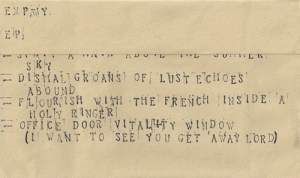 EXPMY.
EP,
A RAIN ABOVE THE SUMMER
SKY
DISMAL GROANS OF LUST ECHOES
ABOUND
FLOURISH WITH THE FRENCH INSIDE A
HOLY RINGER
OFFICE DOOR VITALITY WINDOW
(I WANT TO SEE YOU GET AWAY LORD)